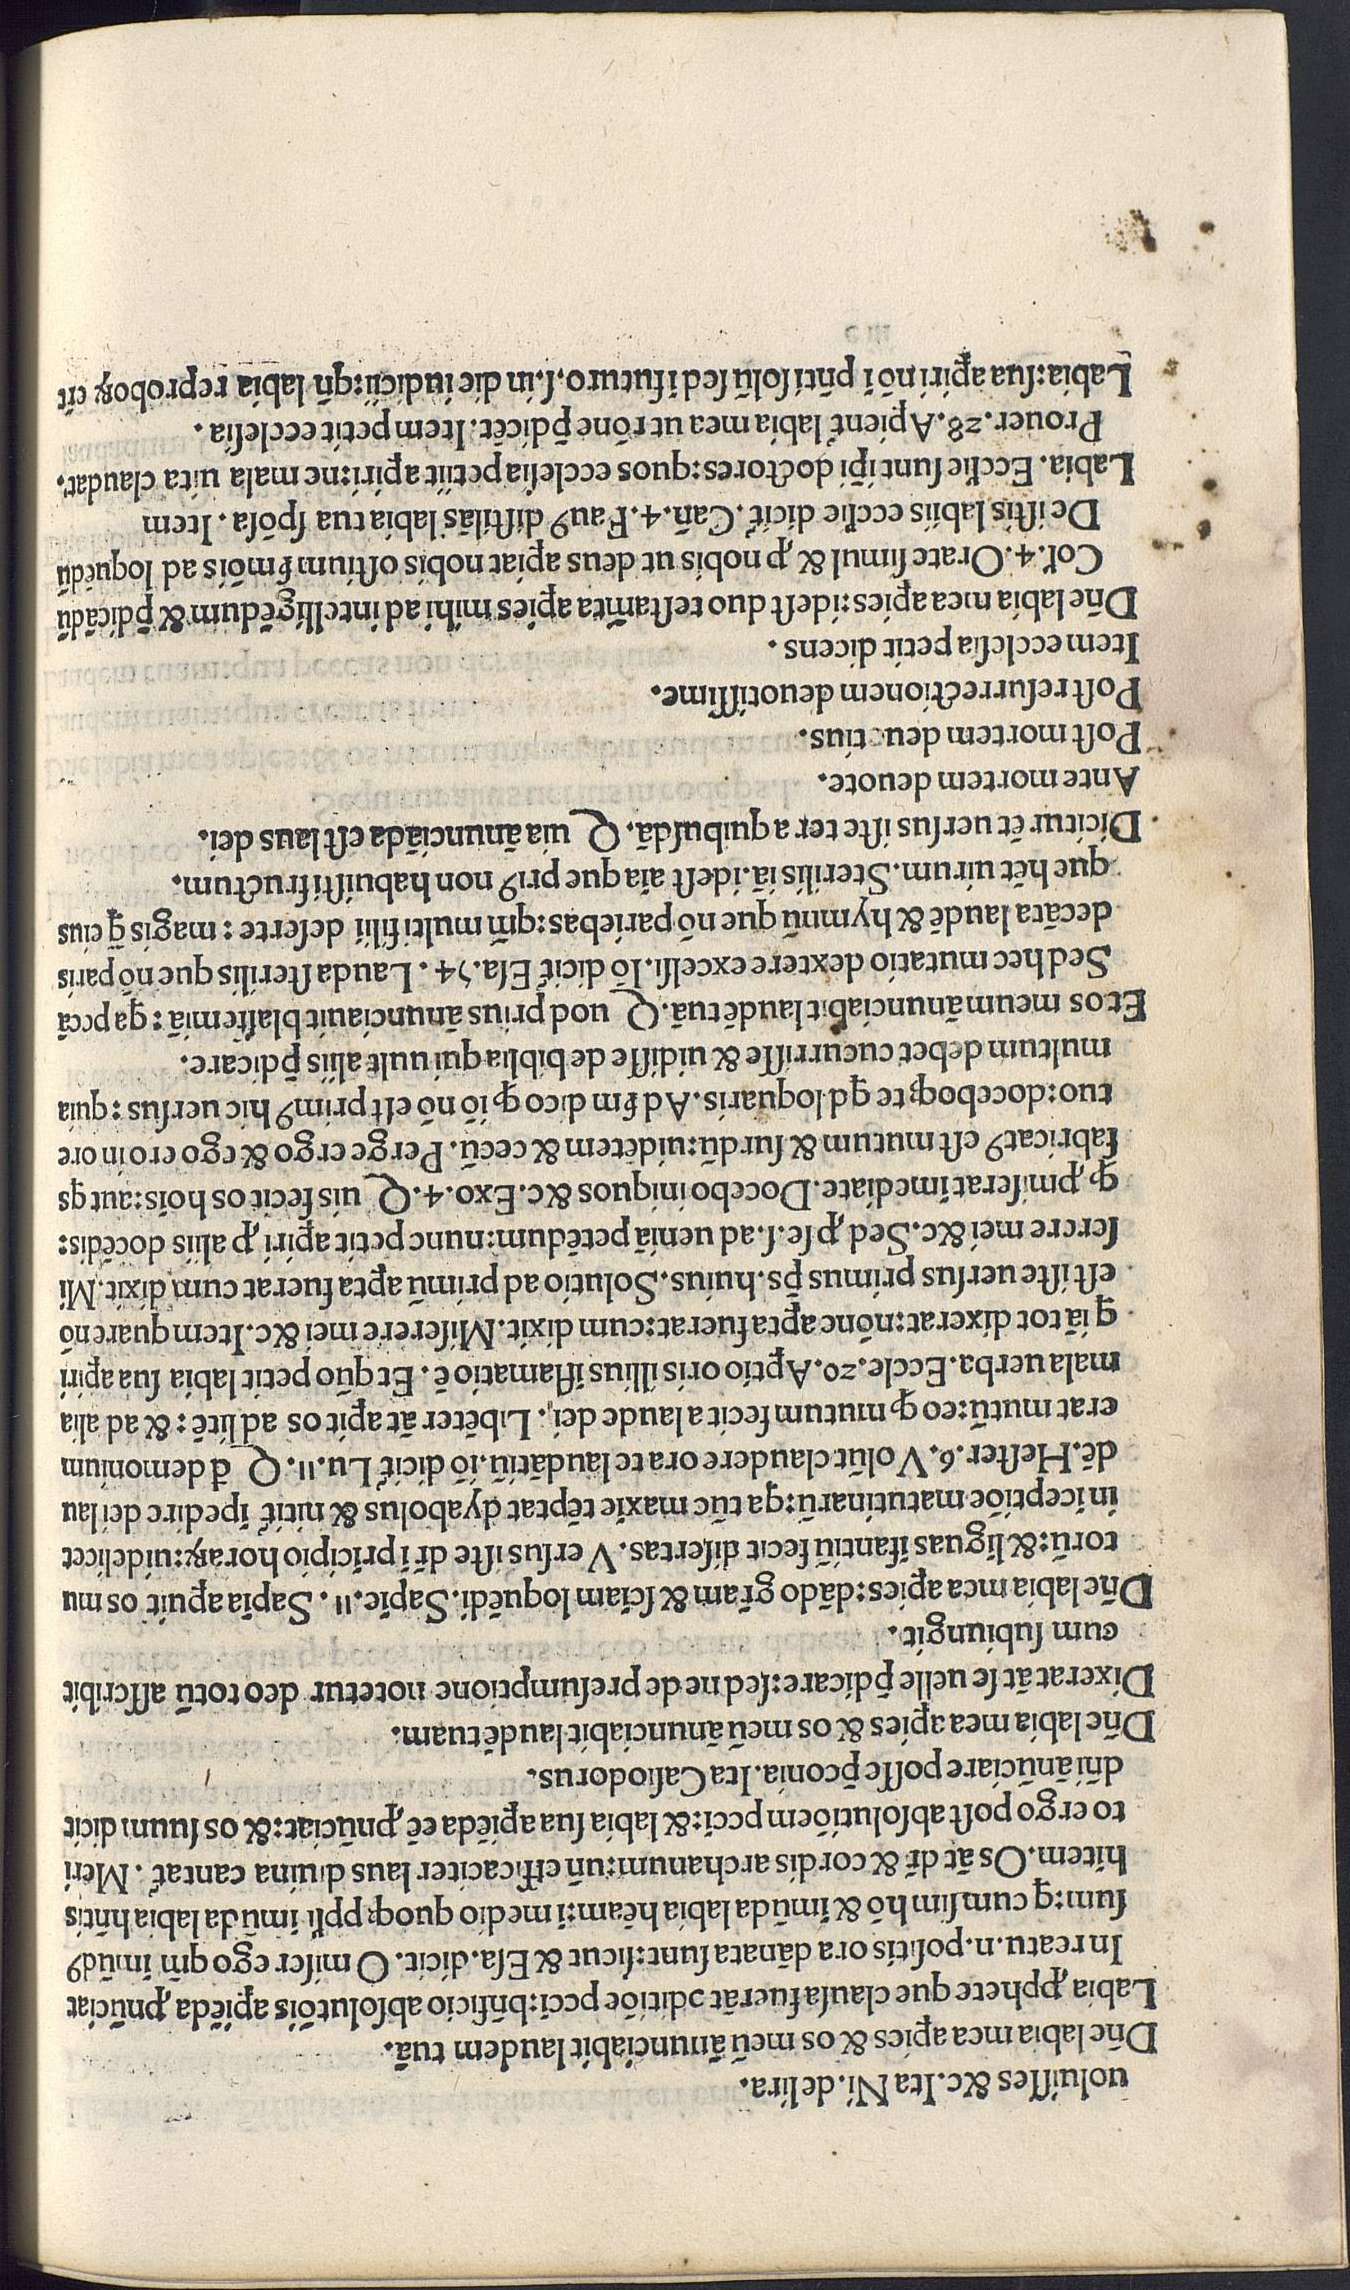 uoluiſſes &c.Ita Ni.de lira.
Dn̄e labia mea apıes & os meū ānunciabit laudem tuā.
Labia ꝓphete que clauſa fuerāt ↄditiōe pcc̄i:bn̄ficio abſolutōis apiēda ꝓnūciat
In reatu.n.poſitis ora dānata ſunt:ſicut & Eſa.dicit. O miſer ego qm̄ imūdꝰ
ſum:q cum ſim hō & imūda labia hēam:ī medio quoqꝫ ppl̄i imūda labia hn̄tis
hītem.Os āt dr̄ & cordis archanum:un̄ efficaciter laus diuina cantat̄. Meri
to ergo poſt abſolutiōem pcc̄i:& labia ſua apiēda eē ꝓnūciat:& os ſuum dicit
dn̄i ānūciare poſſe p̄conia.Ita Caſiodorus.
Dn̄e labia mea apies & os meū ānunciabit laudē tuam.
Dixerat āt ſe uelle p̄dicare:ſed ne de preſumptione notetur deo totū aſſcribit
cum ſubiungit.
Dn̄e labia mea apies:dādo gr̄am & ſciam loquēdi.Sapie.11. Sapīa apuit os mu
torū:& līguas īfantiū fecit diſertas. Verſus iſte dr̄ ī prīcipio horaꝝ:uidelicet
in īceptiōe matutinarū:qa tūc maxie tēptat dyabolus & nitit̄ īpedire dei lau
dē.Heſter.6. Volūt claudere ora te laudātiū.iō dicit̄ Lu.11. Q d̄ demonium
erat mutū:eo ꝙ mutum fecit a laude dei. Libēter āt apit os ad litē: & ad alia
mala uerba.Eccle.20.Aptio oris illius īflamatio ē. Et quō petit labia ſua apiri
q iā tot dixerat:nōne apta fuerat:cum dixit.Miſerere mei &c.Item quare nō
eſt iſte uerſus primus pſ.huius.Solutio ad primū apta fuerat cum dixit.Mi
ſerere mei &c.Sed ꝓ ſe.ſ.ad ueniā petēdum:nunc petit apiri ꝓ aliis docēdis:
ꝙ ꝓmiſerat īmediate.Docebo iniquos &c.Exo.4.Q uis fecit os hoīs:aut qs
fabricatꝰ eſt mutum & ſurdū:uidētem & cecū. Perge ergo & ego ero in ore
tuo:doceboqꝫ te qd loquaris.Ad ſm dico ꝙ iō nō eſt primꝰ hic uerſus: quia
multum debet cucurriſſe & uidiſſe de biblia qui uult aliis p̄dicare.
Et os meum ānunciabit laudē tuā.Q uod prius ānunciauit blaſfemiā: qa pccā
Sed hec mutatio dextere excelſi.Iō dicit̄ Eſa.54. Lauda ſterilis que nō paris
decāta laudē & hymnū que nō pariebas:qm̄ multi filii deſerte: magis q̄ eius
que hēt uirum.Sterilis iā.ideſt aīa que priꝰ non habuiſti fructum.
Dicitur ēt uerſus iſte ter a quibuſdā. Q uia ānunciāda eſt laus dei.
Ante mortem deuote.
Poſt mortem deuotius.
Poſt reſurrectionem deuotiſſime.
Item eccleſia petit dicens.
Dn̄e labia mea apies:ideſt duo teſtam̄ta apies mihi ad intelligēdum & p̄dicādū
Col̄.4.Orate ſimul & ꝓ nobis ut deus apiat nobis oſtium ſmōis ad loquēdū
De iſtis labiis eccl̄ie dicit̄.Can̄.4.Fauꝰ diſtilās labia tua ſpōſa. Item
Labia. Eccl̄ie ſunt ip̄i doctores:quos eccleſia petiit apiri:ne mala uita claudat.
Prouer.28.Apient̄ labia mea ut rōne p̄dicēt.Item petit eccleſia.
Labia:ſua apiri nō ī pn̄ti ſolū ſed ī futuro.ſ.in die iudicii:qn̄ labia reproboꝝ eīt
e iii